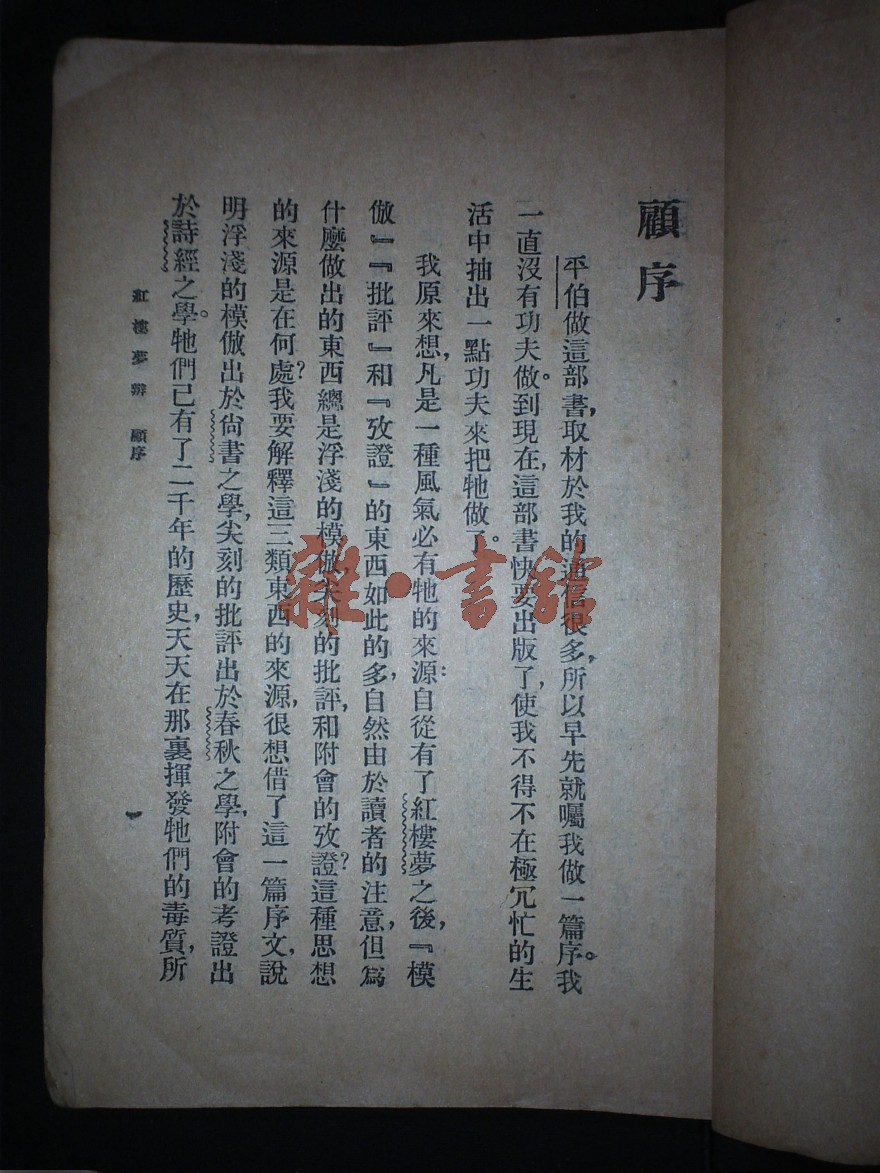 顧序
平伯做這部書,取材於我的通信很多,所以早先就囑我做一篇序。我
一直沒有功夫做。到現在,這部書快要出版了,使我不得不在極冗忙的生
活中抽出一點功夫來把牠做了。
我原來想,凡是一種風氣必有牠的來源:自從有了紅樓夢之後,『模
倣』『批評』和『攷證』的東西如此的多,自然由於讀者的注意,但爲
什麼做出的東西總是浮淺的模倣,尖刻的批評,和附會的攷證?這種思想
的來源是在何處?我要解釋這三類東西的來源,很想借了這一篇序文,說
明浮淺的模倣出於尙書之學,尖刻的批評出於春秋之學,附會的考證出
於詩經之學。牠們已有了二千年的歷史,天天在那裏揮發牠們的毒質,所
紅樓夢辨 顧序
一
雜·書館